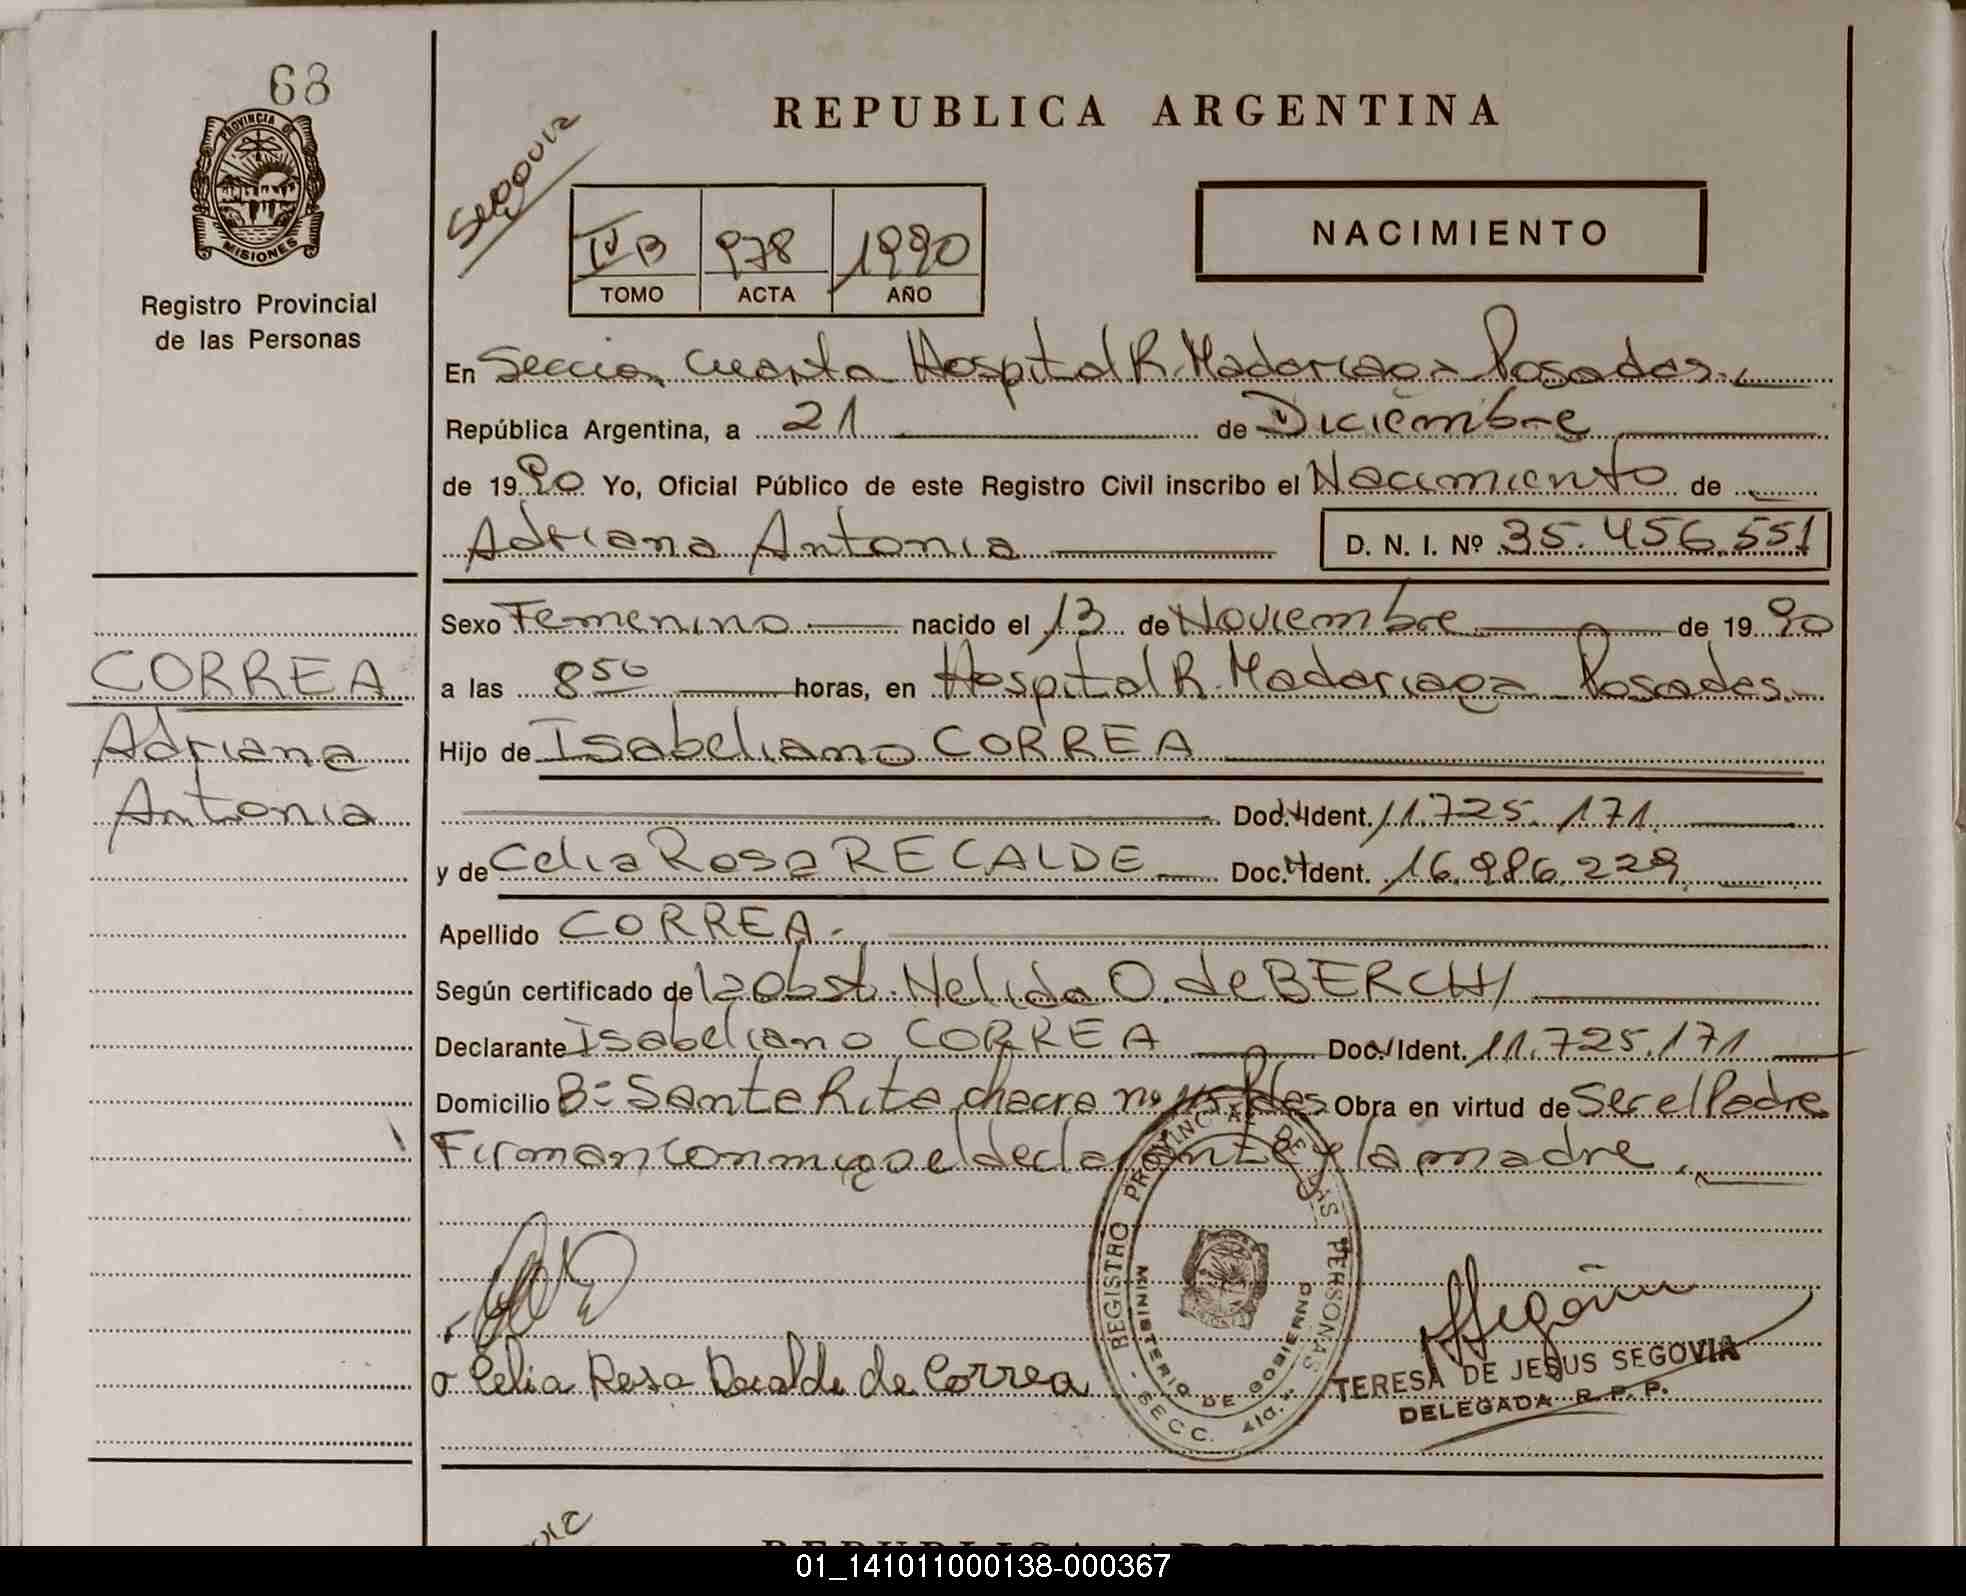 68
PROVINCIA DE
MISIONES
Registro Provincial
de las Personas
CORREA
Adriana
Antonia
REPUBLICA ARGENTINA
Segovia
IV B 978 1990
TOMO ACTA AÑO
NACIMIENTO
En Seccion Cuarta Hospital R. Madariaga Posadas.
República Argentina, a 21 de Diciembre
de 1990 Yo, Oficial Público de este Registro Civil inscribo el Nacimiento de
Adriana Antonia D. N. I. Nº 35.456.551
Sexo Femenino nacido el 13 de Noviembre de 1990
a las 8 50 horas, en Hospital R. Madariaga Posadas.
Hijo de Isabeliano CORREA
Doc. Ident. 11.725.171.
y de Celia Rosa RECALDE Doc. Ident. 16.986.229.
Apellido CORREA.
Según certificado de la obst. Nelida O. de BERCHI
Declarante Isabeliano CORREA Doc. Ident. 11.725.171
Domicilio Bº Santa Rita chacra nº Pdas Obra en virtud de Ser el Padre
Firman conmigo el declarante y la madre.
Celia Rosa Recalde de Correa
REGISTRO PROVINCIAL DE LAS PERSONAS
MINISTERIO DE GOBIERNO
- SECC. 4ta. -
TERESA DE JESUS SEGOVIA
DELEGADA R. P. P.
REPUBLICA ARGENTINA
01_141011000138-000367